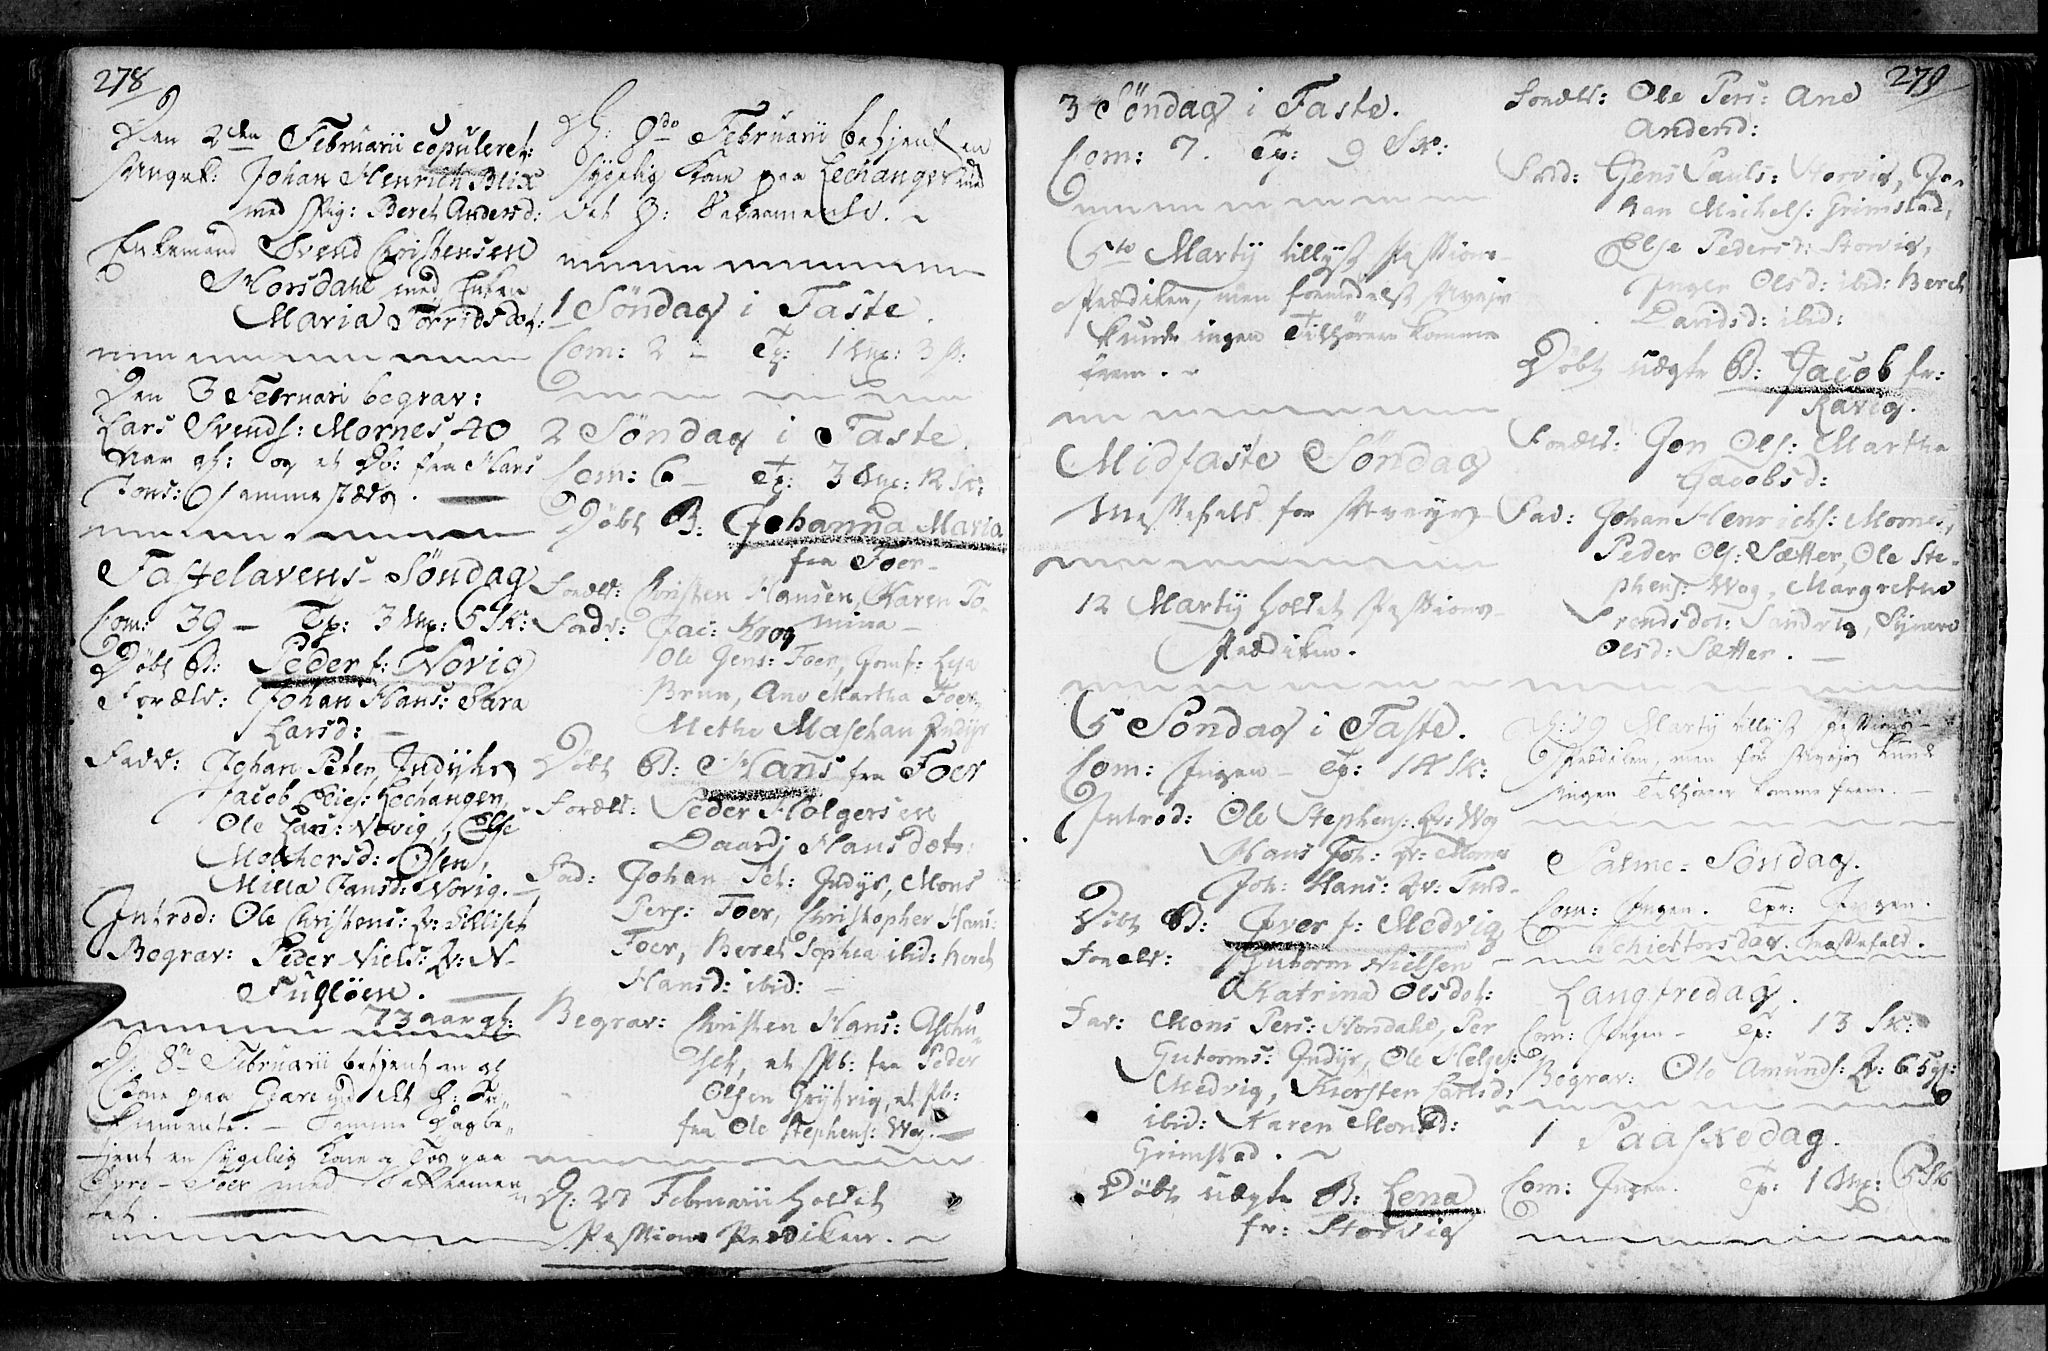 278
Den 2den Februarii copuleret:
Ungk: Johan Henrich Blix
med Pig: Beret Andersd:
Enkemand Svend Christensen
Horsdahl med Enken
Maria Torrisdot:
Den 3 Februari begrav:
Lars Svends: Mornes, 40
aar gl: og et Db: fra Hans
Jons: sammestæds.
Fastelavens Söndag
Com: 39 — Tp: 3 Mp: 6 Sk:
Döbt B: Peder f: Növig
Foræld: Johan Hans: Sara
Larsd: —
Fadd: Johan Peter Jndyhr
Jacob Lechangen,
Ole Lars: Növig, Else
Melchersd: Osen,
Milla Jansd: Növig. —
Jntrod: Ole Christens: Qv:
Begrav: Peder Niels: Qv: N-
Fuglöen. —
73 aar gl:
D: 8de Februarii betjent en gl
Kone paa det H: Sa-
kramente. — Samme Dag be-
tjent en sygelig Kone paa
Övre-Foer med Sakramen
tet.
D: 9de Februarii betjent en
sygelig Kone paa Lechanger med
det H: Sacramente.
1 Söndag i Faste.
Com: 2 — Tp: 1 Mp: 3 s:
2 Söndag i Faste.
Com: 6 — Tp: 3 Mp: 12 Sk:
Döbt B: Johanna Maria
fra Foer —
Foræld: Christen Hansen, Karen To-
mina —
Fadd: Jac: Krog
Ole Jens: Foer, Jomf: Lisa
Brun, Ane Martha Foer,
Methe Maschan Jndyr
Döbt B: Hans fra Foer
Foræld: Peder Holgersen
Daardj Hansdatr:
Fad: Johan Pet: Jndyr, Mons
Pers: Foer, Christopher Hans:
Foer, Beret Sophia ibid: Beret
Hansd: ibid: —
Begrav: Christen Hans:
et Pb: fra Peder
Olsen Gröttvig, et Pb:
fra Ole Stephens: Wog. —
D: 27 Februarii holdet
Passions Prædiken.
279
3 Söndag i Faste.
Com: 7. Tp: 9 Sk:
5te Martij tillyst Passions-
Prædiken, men formedelst Uveyr
kunde ingen Tilhörere komme
frem.
Midfaste Söndag
Messefald for Uveyr
12 Martij holdet Passions-
Prædiken.
5 Söndag i Faste.
Com: Jngen — Tp: 14 Sk:
Jntrod: Ole Stephens: Qv: Wog
Hans Joh: Qv:
Joh: Hans: Qv:
Döbt B: Jver f: Medvig
Foræld: Gutorm Nielsen —
Katrina Olsdot:
Fad: Mons Pers: Horsdahl, Per
Gutorms: Jndyr, Ole Helges:
Medvig, Kiersten Carlsd:
ibid: Karen Monsd:
Grimstad.
Döbt uægte B: Lena
fr: Storvig
Foræld: Ole Pers: Ane
Andersd:
Fad: Jens Pauls: Storvig, Jo-
han Michels: Grimstad,
Else Pedersd: Storvig,
Jnger Olsd: ibid: Beret
Davidsd: ibid:
Döbt uægte B: Jacob fr:
Kavig.
Foræld: Jon Ols: Martha
Jacobsd:
Fad: Johan Henrichs: Mornes,
Peder Ols: Sætter, Ole Ste-
phens: Wog, Margrethe
Trondsdot: Sandvig, Synnve
Olsd: Sætter. —
D: 19 Martij tillyst Passions-
Prædiken, men for Uveyr kunde
Jngen Tilhörere komme frem. —
Palme-Söndag.
Com: Jngen. Tp: Jngen.
Schiertorsdag. Messefald.
Langfredag.
Com: Jngen — Tp: 13 Sk:
Begrav: Ole Amunds: Qv: 65
1 Paaskedag.
Com: Jngen. Tp: 1 Mp: 5 Sk